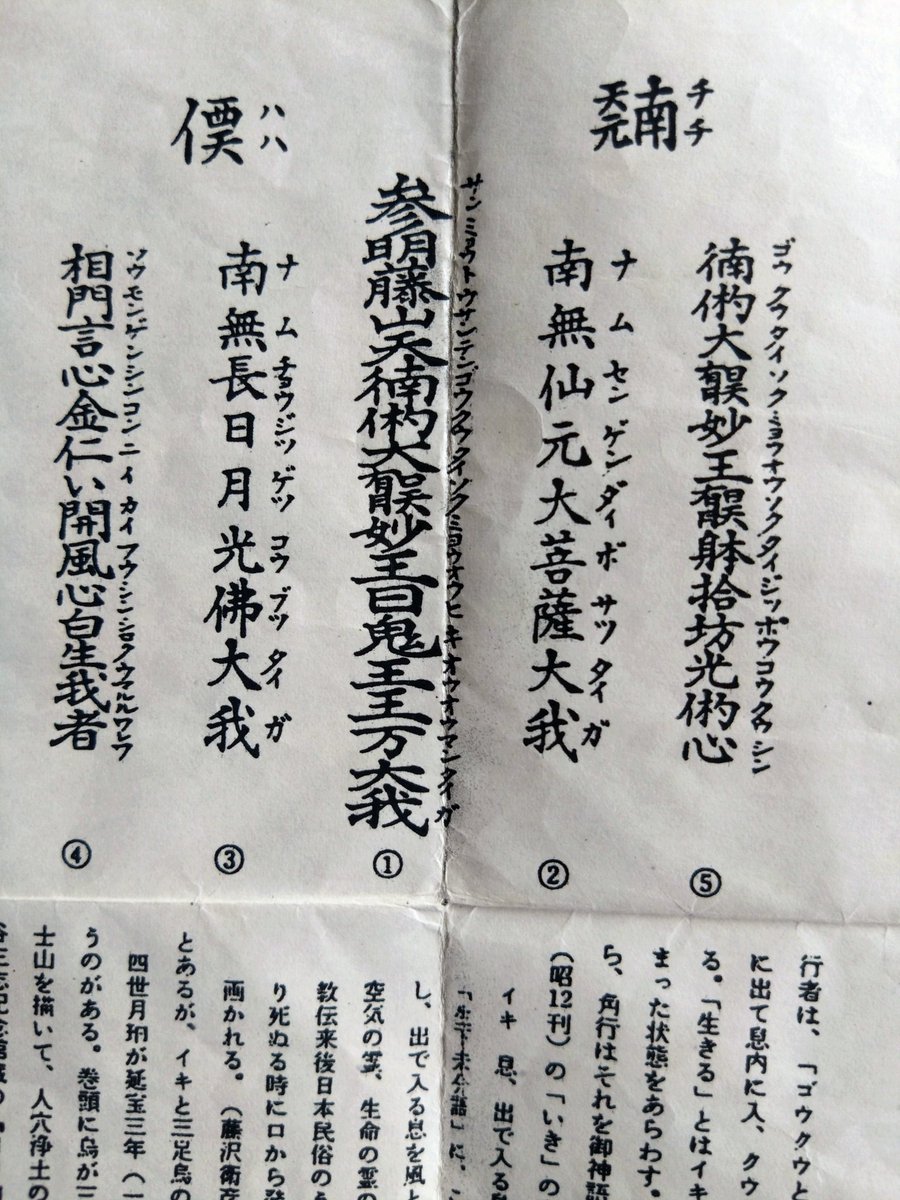 チチ
南
ゴウクウタイソクミョウオウソクタイジッポウコウクウシン
大妙王躰拾坊光心
ナムセンゲンダイボサツタイガ
南無仙元大菩薩大我
サンミョウトウサンテンゴウクウタイソクミョウオウヒキオウオウマンタイガ
参明藤山天大妙王日鬼王王万大我
ハハ
ナムチョウジツゲツコウブツタイガ
南無長日月光佛大我
ソウモンゲンシンコンニイカイ
相門言心金仁い開風心白生我者
⑤
②
①
③
④
行者は、「ゴウクウと
に出て息内に入、クウ
る。「生きる」とはイキ
まった状態をあらわす。
ら、角行はそれを御神語
(昭12刊)の「いき」の
イキ 息、出で入る
未分語」に、
し、出で入る息を風と
空気の霊、生命の霊の
教伝来後日本民俗のう
り死ぬる時に口から
画かれる。(藤沢衛彦
とあるが、イキと三足烏の
四世月玥が延宝三年(一
うのがある。巻頭に烏が三
士山を描いて、人穴浄土の